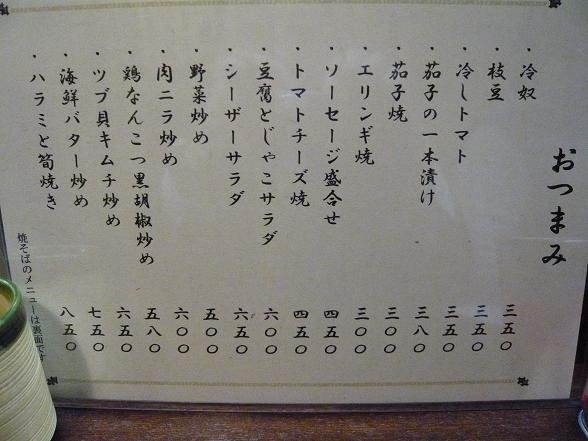 おつまみ
・冷奴 三五〇
・枝豆 三五〇
・冷しトマト 三五〇
・茄子の一本漬け 三八〇
・茄子焼 三〇〇
・エリンギ焼 三〇〇
・ソーセージ盛合せ 四五〇
・トマトチーズ焼 四五〇
・豆腐とじゃこサラダ 六〇〇
・シーザーサラダ 六五〇
・野菜炒め 五〇〇
・肉ニラ炒め 六〇〇
・鶏なんこつ黒胡椒炒め 五八〇
・ツブ貝キムチ炒め 六五〇
・海鮮バター炒め 七五〇
・ハラミと筍焼き 八五〇
焼そばのメニューは裏面です